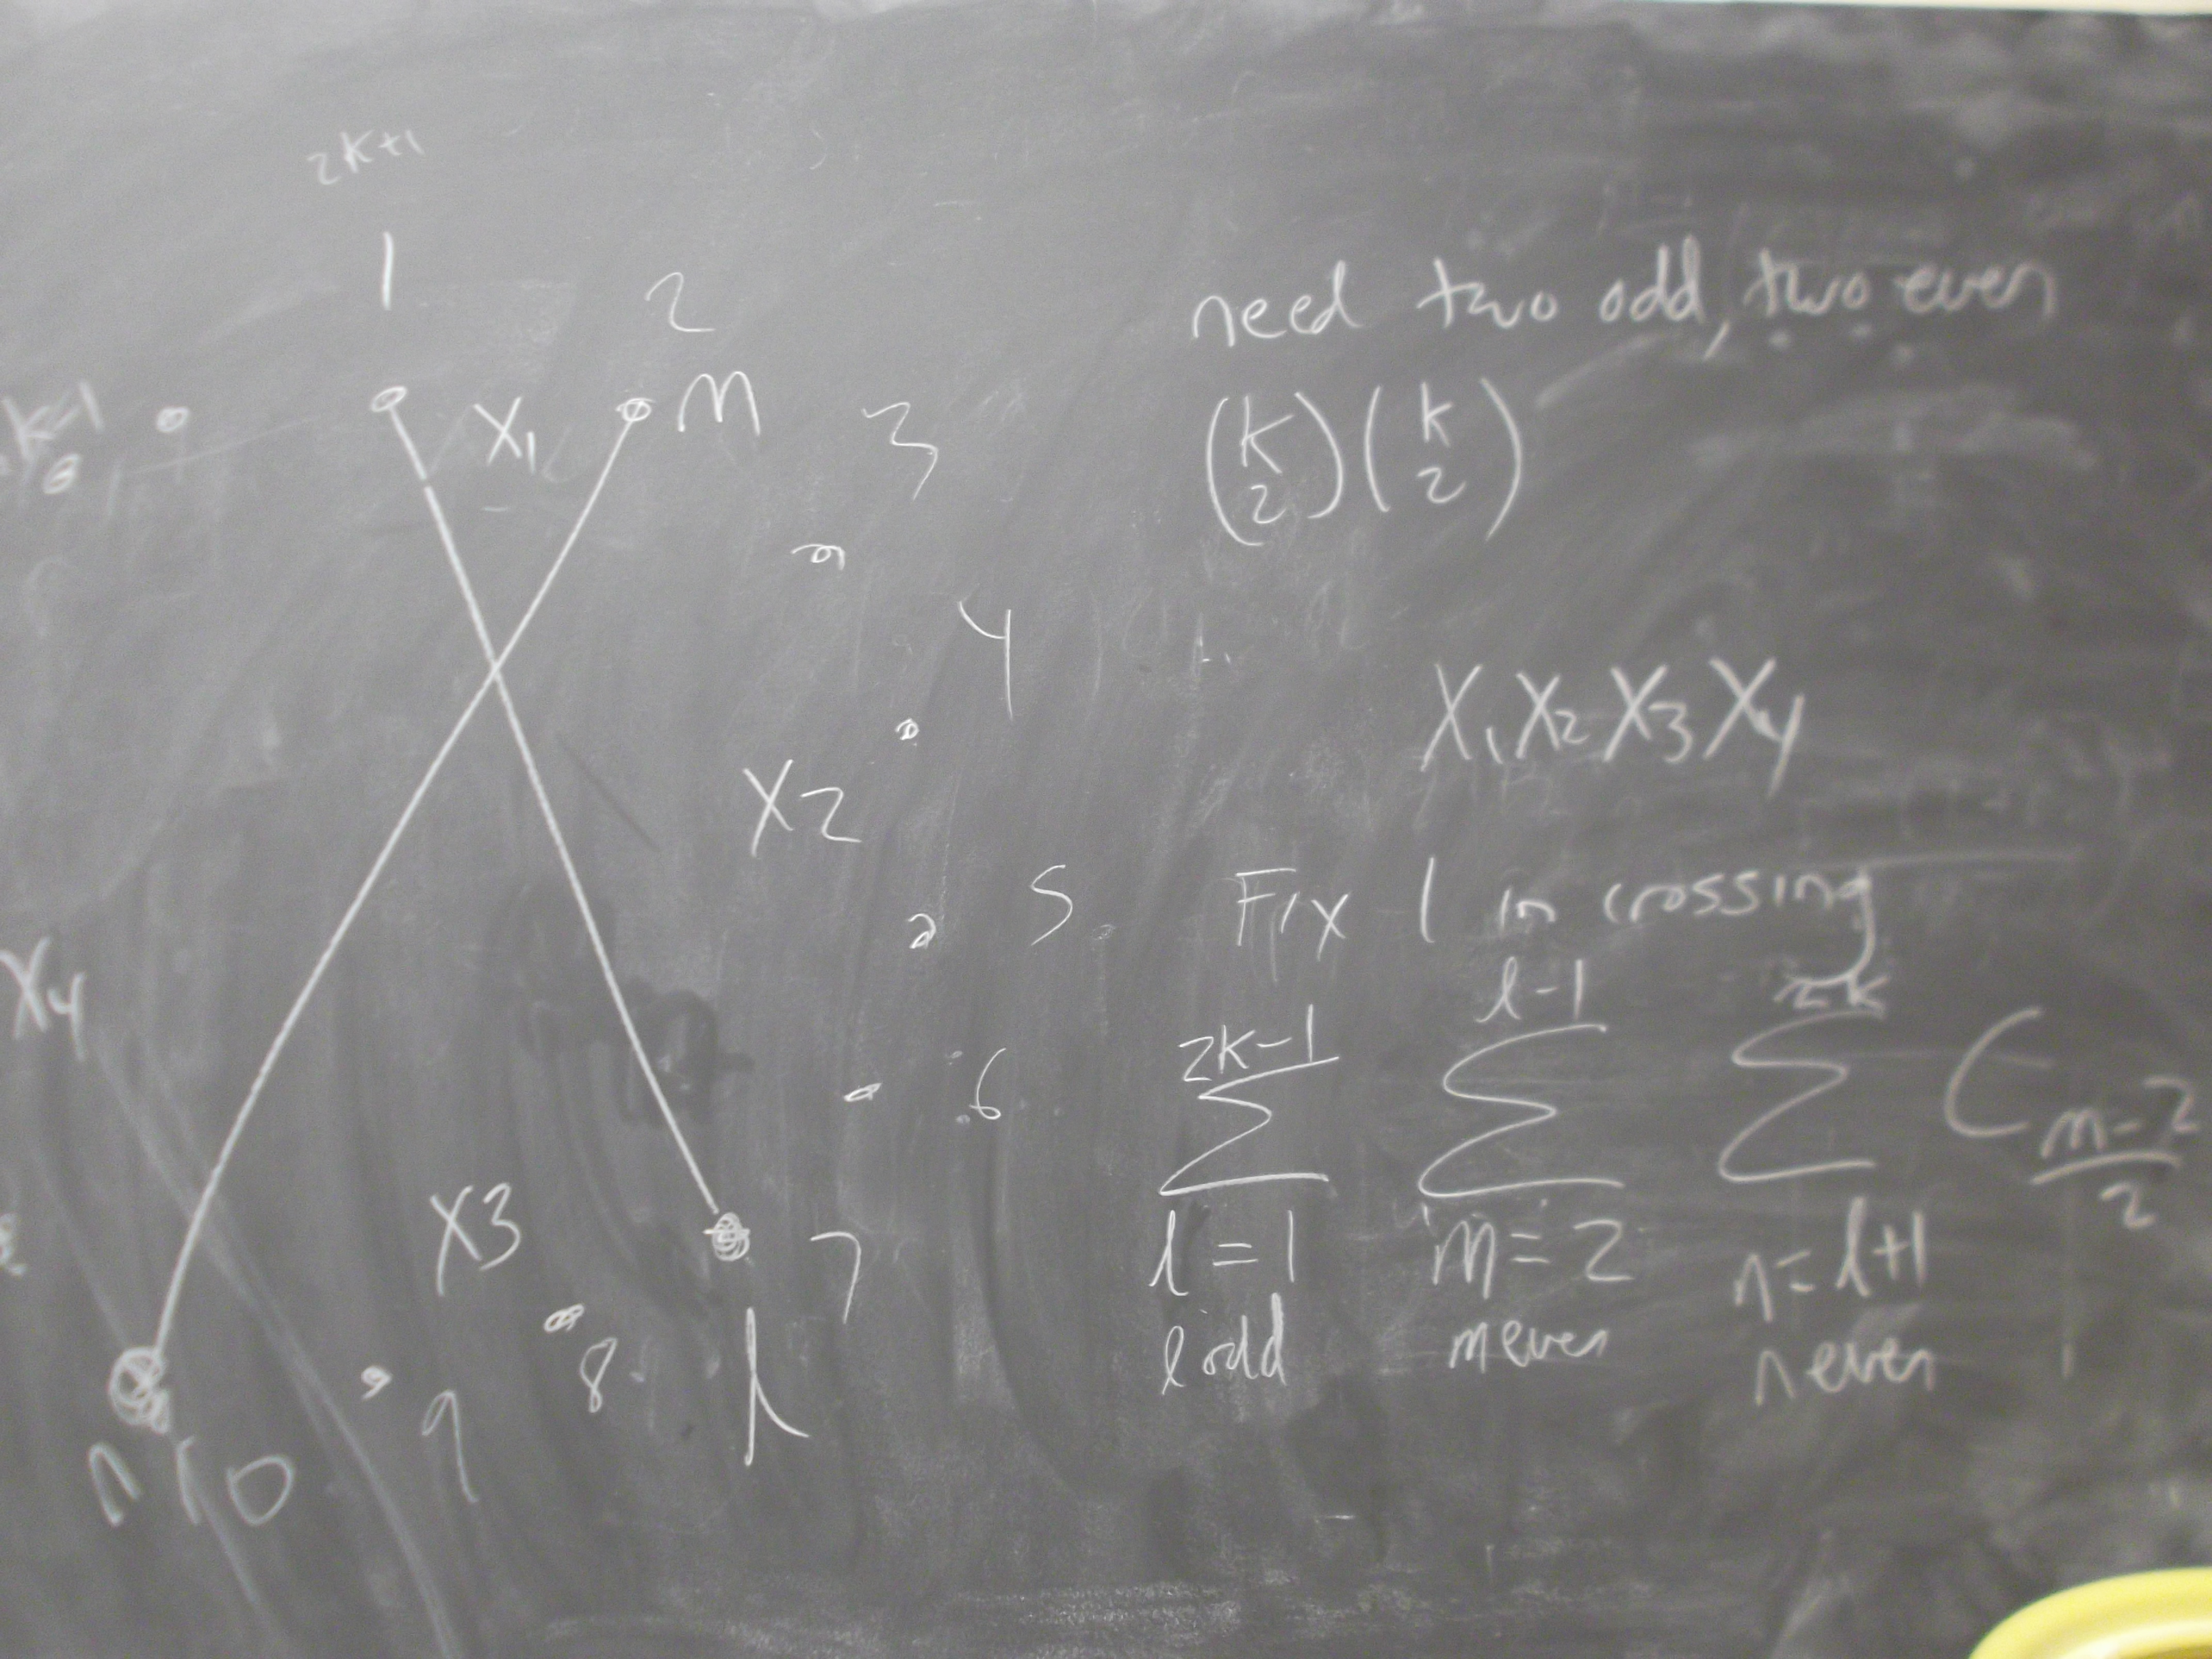 2k+1
1
2
need two odd, two even
k-1
X₁
m
3
(k 2)(k 2)
4
X₁X₂X₃X₄
X₂
5
Fix 1 in crossing
X₄
6
2k-1 l-1 2k
∑ ∑ ∑ C_{\frac{m-2}{2}}
l=1 m=2 n=l+1
l odd m even n even
X3
7
l
8
9
n 10